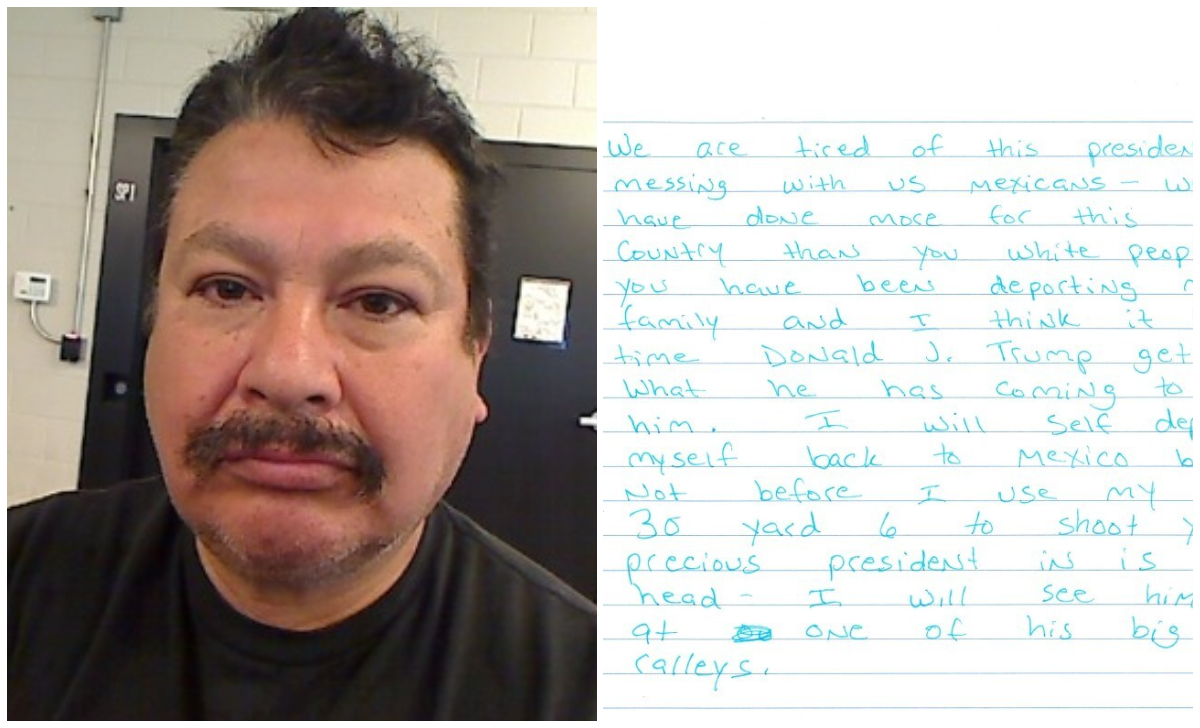 We are tired of this presiden
messing with us mexicans - w
have done more for this
Country than you white peop
you have been deporting
family and I think it
time Donald J. Trump get
What he has coming to
him. I will Self dep
myself back to Mexico b
Not before I use my
30 yard 6 to shoot y
precious president in is
head - I will see him
at one of his big
ralleys.